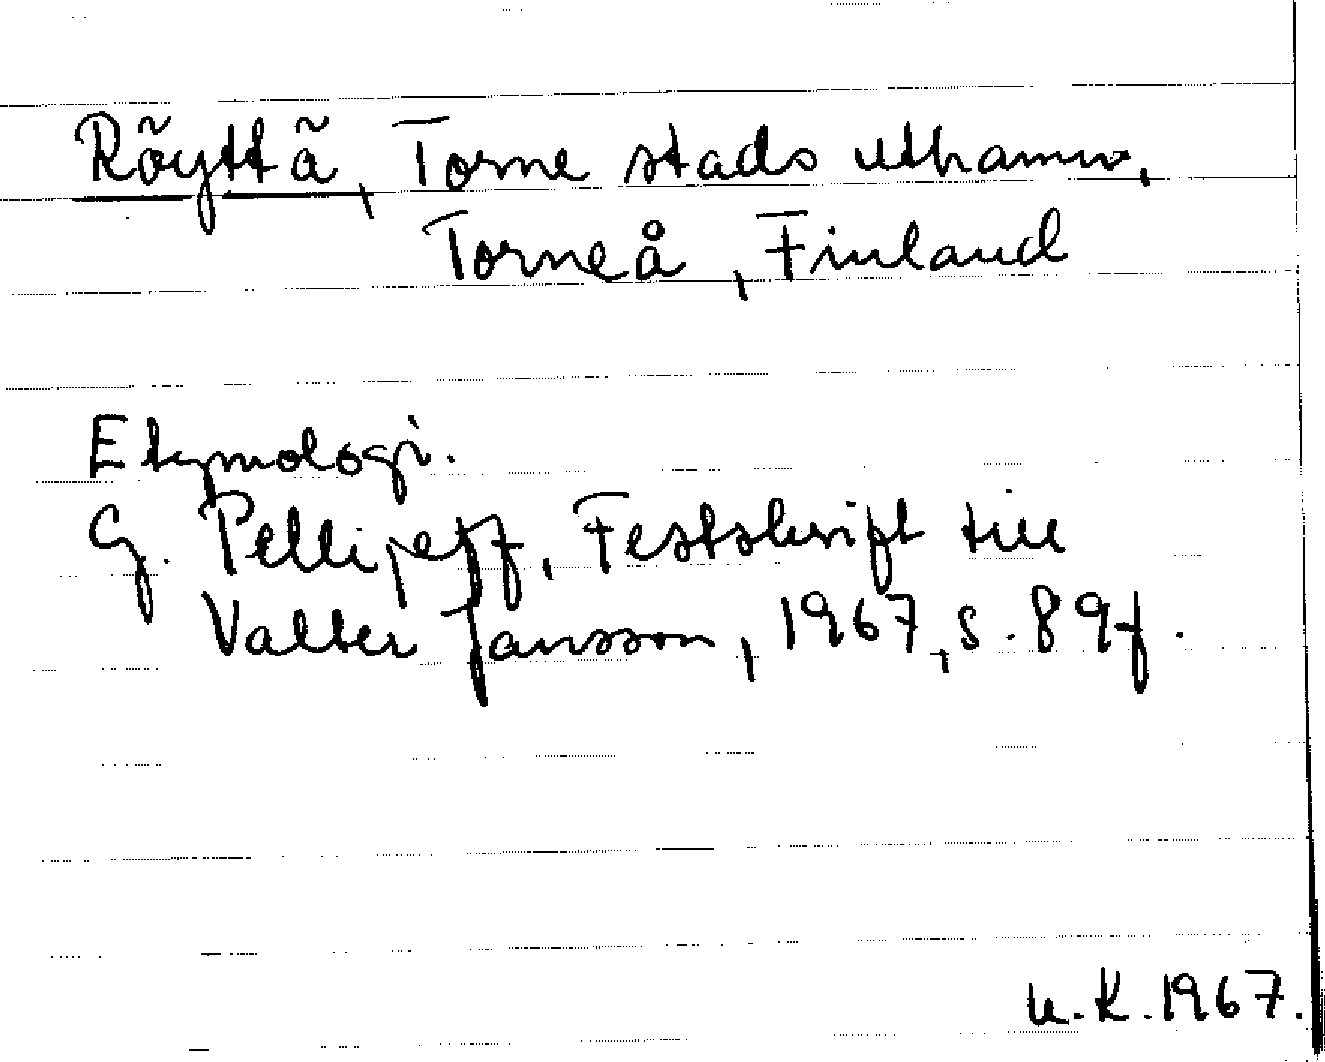 Röyttä, Torne stads uthamn,
Torneå, Finland
Etymologi.
G. Pellijeff, Festskrift till
Valter Jansson, 1967, s. 89f.
U.K. 1967.